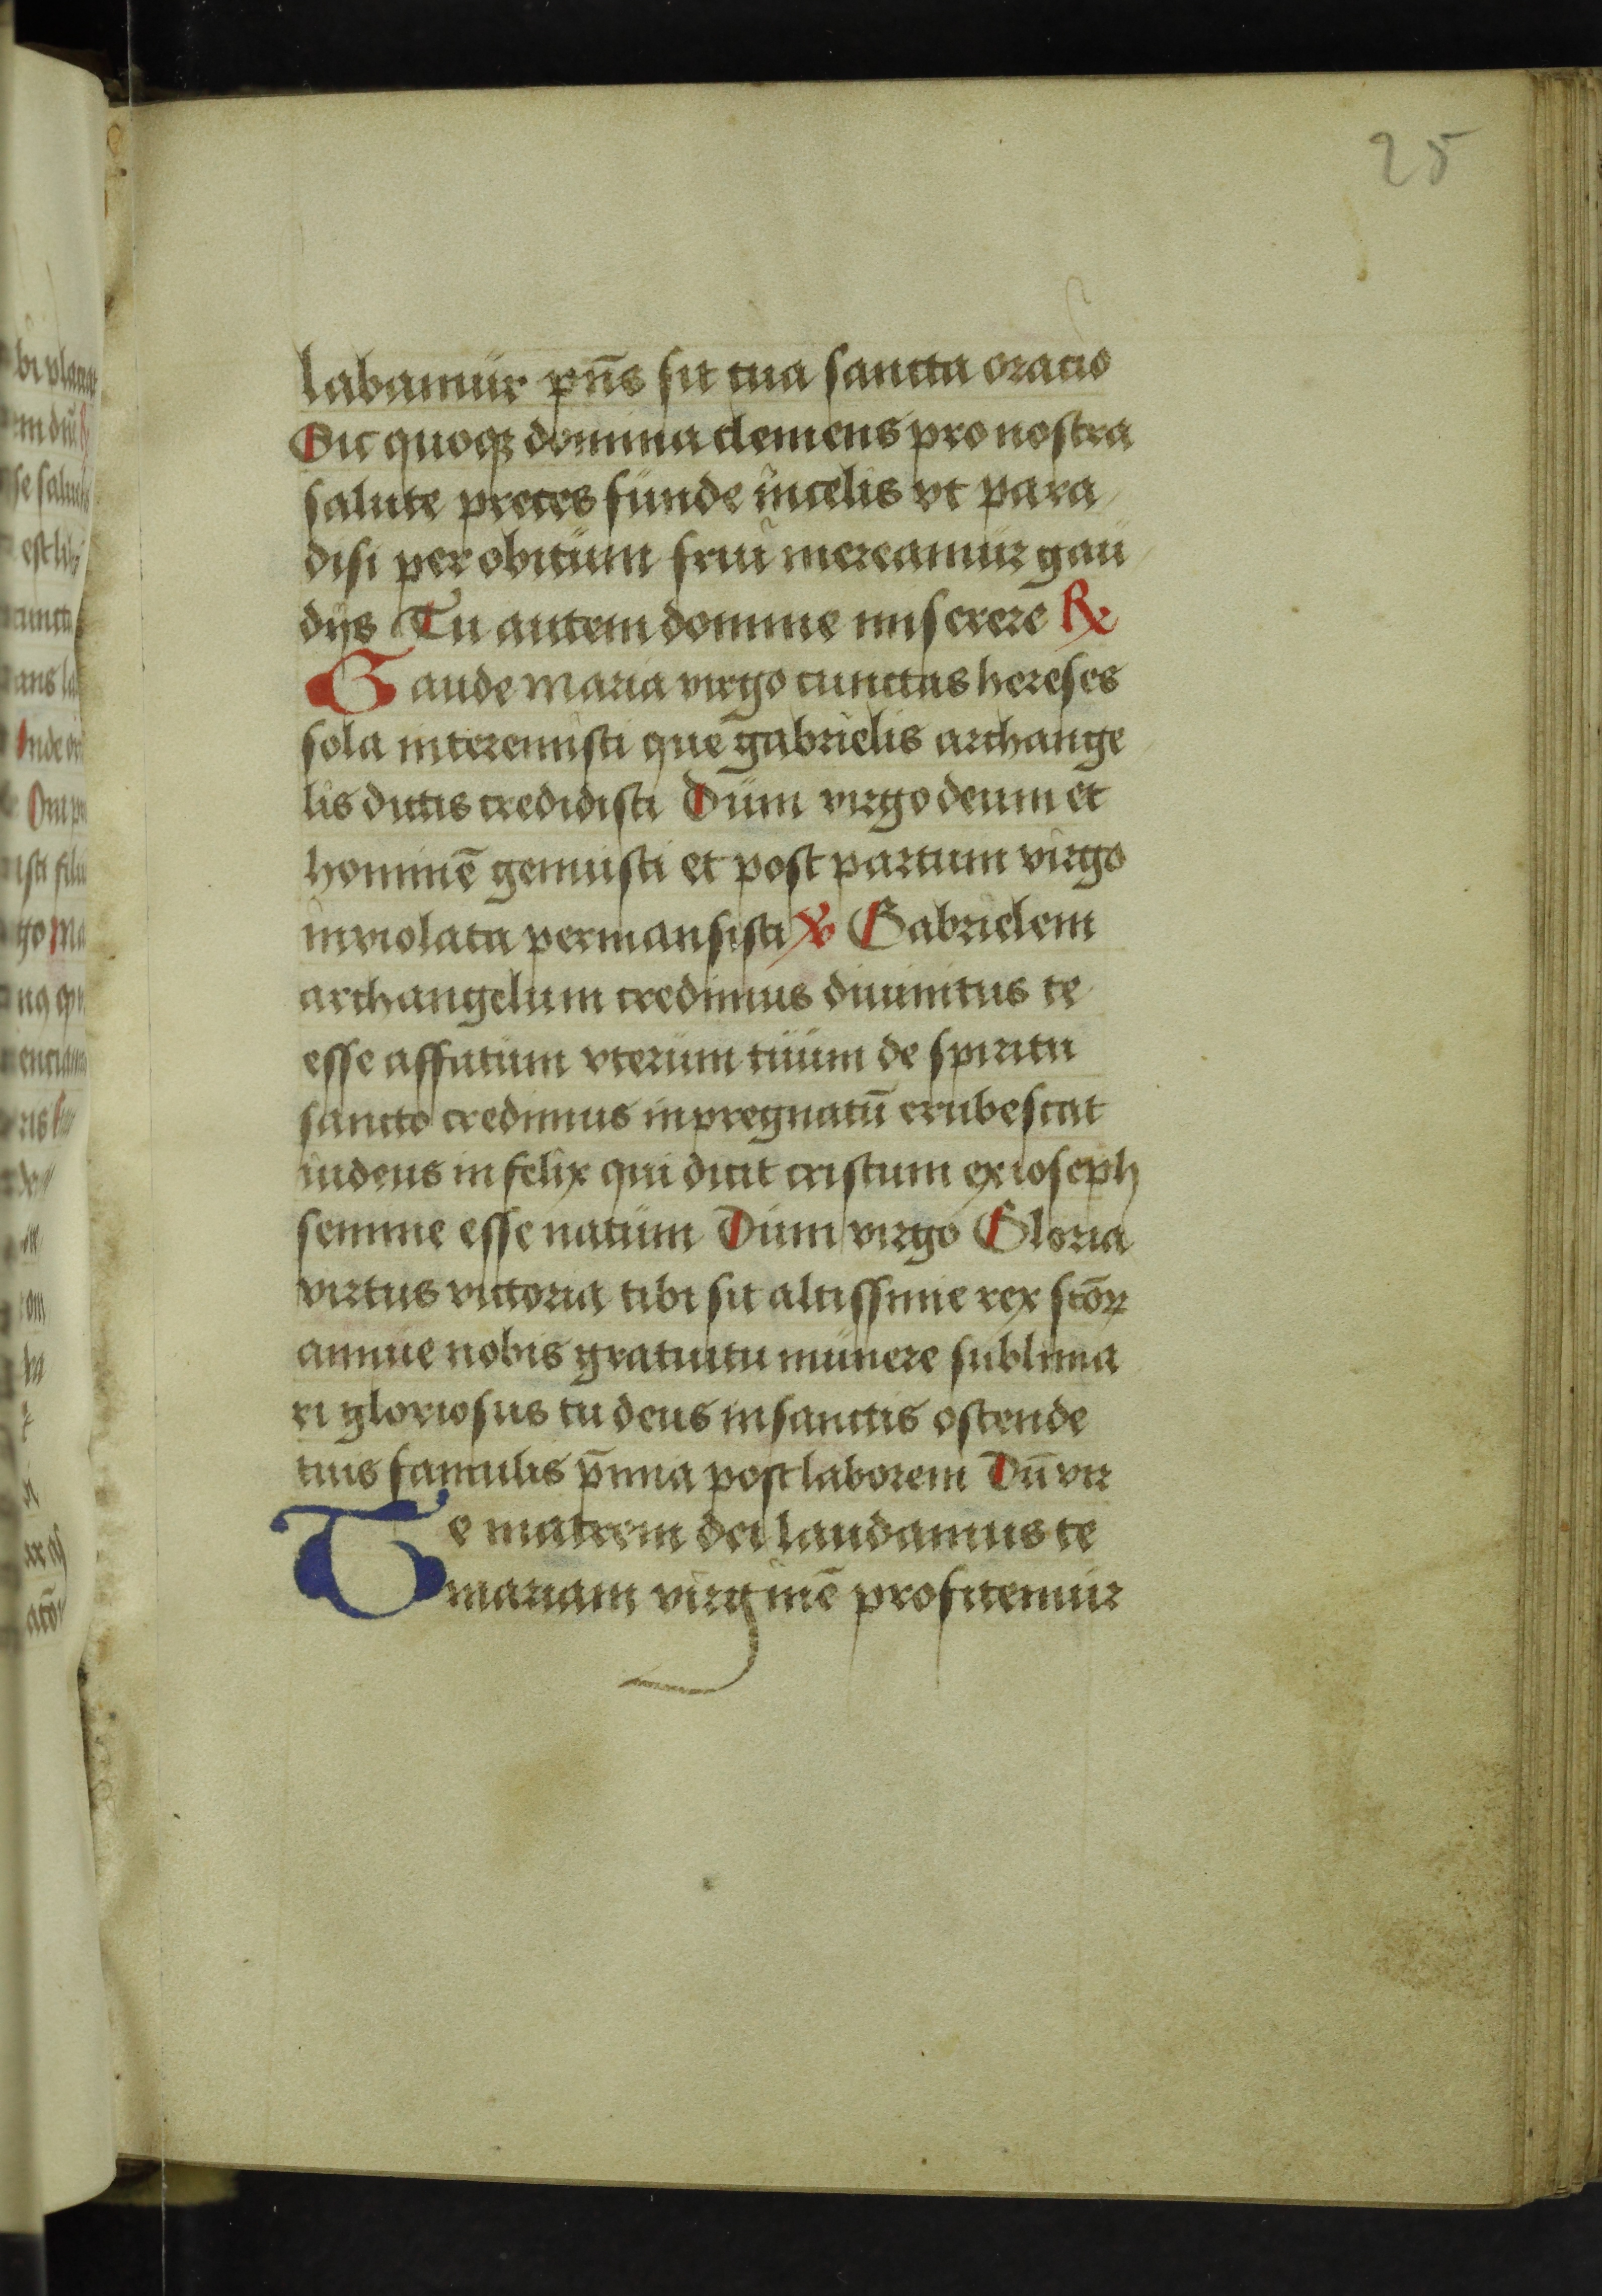 25
labamur pn̄s sit tua sancta oracio
Sic quoqꝫ domina clemens pro nostra
salute preces funde in celis vt para
disi per obitum frui mereamur gau
dijs Tu autem domine miserere ℞
Gaude maria virgo cunctas hereses
sola interemisti que gabrielis archange
lis dictis credidisti Dum virgo deum et
hominē genuisti et post partum virgo
inviolata permansisti ℣ Gabrielem
archangelum credimus diuinitus te
esse affatum vterum tuum de spiritu
sancto credimus inpregnatū erubescat
iudeus infelix qui dicit cristum ex ioseph
semine esse natum Dum virgo Gloria
virtus victoria tibi sit altissime rex sc̄oꝝ
annue nobis gratuitu munere sublima
ri gloriosus tu deus in sanctis ostende
tuis famulis p̄mia post laborem Dū vir
Te matrem dei laudamus te
mariam virginē profitemur